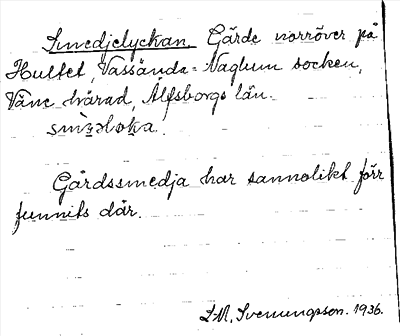 Smedjelyckan. Gärde norröver på
Hultet, Vassända-Naglum socken,
Väne härad, Älfsborgs län.
Gårdssmedja har sannolikt förr
funnits där.
S.M. Svenungsson. 1936.